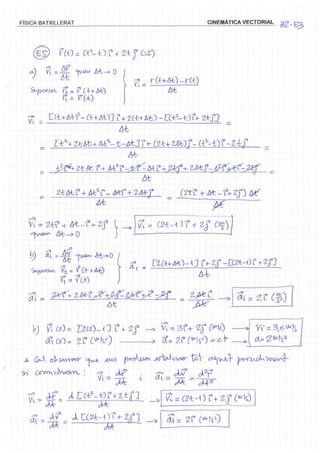 FÍSICA BATXILLERAT
CINEMÀTICA VECTORIAL B2-E3
E5 r⃗(t) = (t²-t) i⃗ + 2t j⃗ (SI)
a) v⃗i = Δr⃗/Δt quan Δt→0
r⃗2 = r⃗(t+Δt)
r⃗1 = r⃗(t)
v⃗i = r(t+Δt) - r(t) / Δt
v⃗i = [(t+Δt)²-(t+Δt)] i⃗ + 2(t+Δt) j⃗ - [(t²-t) i⃗ + 2t j⃗] / Δt =
= [t²+2tΔt+Δt²-t-Δt] i⃗ + (2t+2Δt) j⃗ - (t²-t) i⃗ - 2t j⃗ / Δt =
= t² i⃗ + 2tΔt i⃗ + Δt² i⃗ - t i⃗ - Δt i⃗ + 2t j⃗ + 2Δt j⃗ - t² i⃗ + t i⃗ - 2t j⃗ / Δt =
= 2tΔt i⃗ + Δt² i⃗ - Δt i⃗ + 2Δt j⃗ / Δt = (2t i⃗ + Δt - i⃗ + 2j⃗) Δt / Δt
v⃗i = 2t i⃗ + Δt - i⃗ + 2j⃗ quan Δt→0 → v⃗i = (2t-1) i⃗ + 2j⃗ (m/s)
b) a⃗i = Δv⃗/Δt quan Δt→0
v⃗2 = v⃗(t+Δt)
v⃗1 = v⃗(t)
a⃗i = [2(t+Δt)-1] i⃗ + 2j⃗ - [(2t-1) i⃗ + 2j⃗] / Δt
a⃗i = 2t i⃗ + 2Δt i⃗ - i⃗ + 2j⃗ - 2t i⃗ + i⃗ - 2j⃗ / Δt = 2Δt i⃗ / Δt → a⃗i = 2 i⃗ (m/s²)
v⃗i(2) = [2(2)-1] i⃗ + 2j⃗ → v⃗i = 3 i⃗ + 2j⃗ (m/s) → vi = 3,6 m/s
a⃗i(2) = 2 i⃗ (m/s²) → a⃗ = 2 i⃗ (m/s²) = ct → a = 2 m/s²
* Cal observar que ens podem estalviar tot aquest procediment
si : v⃗i = dr⃗/dt i a⃗i = dv⃗/dt = d²r⃗/dt²
v⃗i = dr⃗/dt = d[(t²-t) i⃗ + 2t j⃗] / dt → v⃗i = (2t-1) i⃗ + 2j⃗ (m/s)
a⃗i = dv⃗/dt = d[(2t-1) i⃗ + 2j⃗] / dt → a⃗i = 2 i⃗ (m/s²)